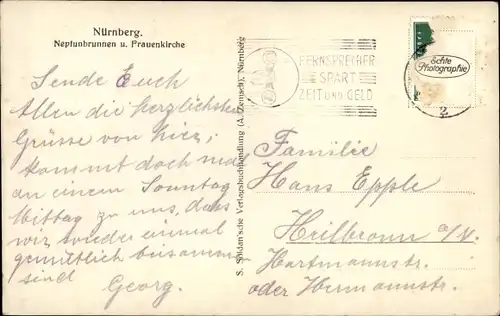 Nürnberg.
Neptunbrunnen u. Frauenkirche
Sende Euch
Allen die herzlichsten
Grüsse von hier,
kommt doch mal
an einem Sonntag
Mittag zu uns, dass
wir wieder einmal
gemütlich beisammen
sind
Georg.
S. Soldan'sche Verlagsbuchhandlung (A. Zemsch), Nürnberg
FERNSPRECHER
SPART
ZEIT UND GELD
Echte
Photographie
2
Familie
Hans Epple
Heilbronn a/N.
Hartmannstr.
oder Hermannstr.